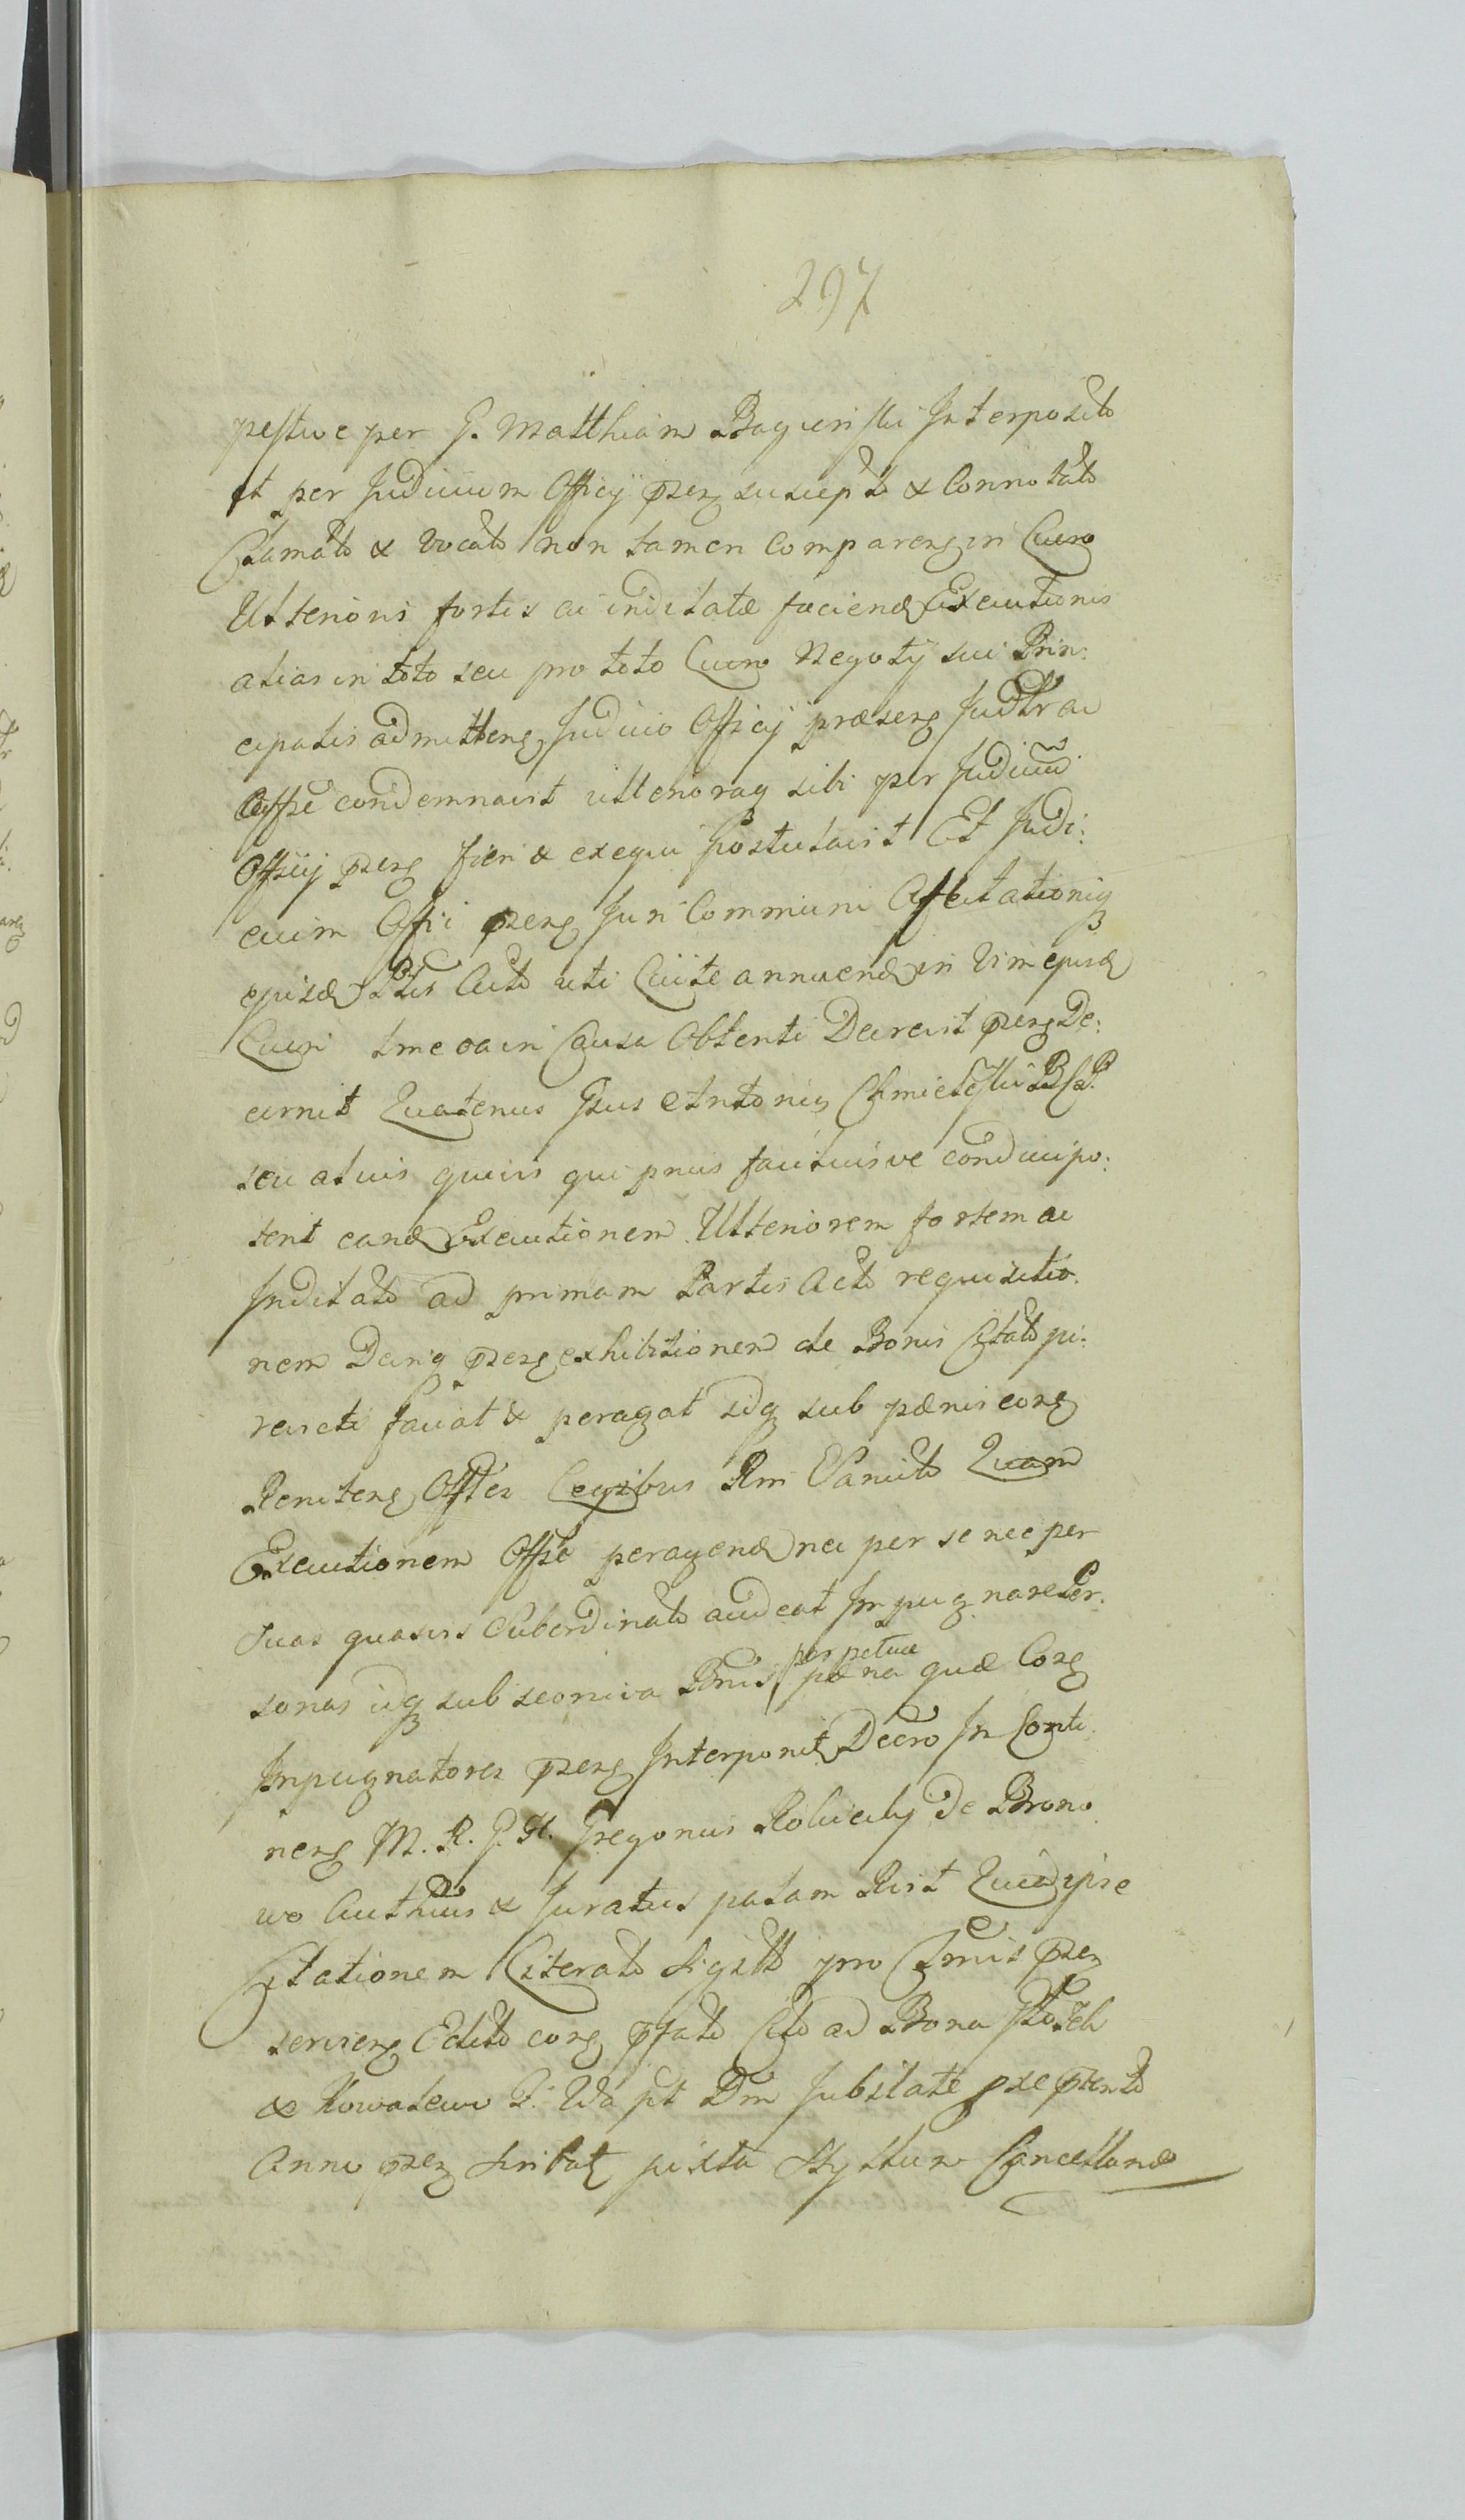 297
pestive per G. Matthiam Bagienski Interposito
et per Judicium Officij præns suscepto & Connotato
Clamato & Vocato non tamen Comparens in Lucro
Ulterioris fortis ac inditatæ faciend Executionis
alias in toto seu pro toto Lucro Negotij sui Prin:
cipalis admittens Judicio Officij præsens Judtr ac
Offse condemnavit ulterioraq sibi per Judicium
Officij præns fieri & exequi Postulavit Et Judi:
cium Offi præns Juri Communi Affectationiq
ejusd Ptis Acto uti Licite annuend in Vim ejusd
Lucri in Causa Obtenti Decrevit præns De:
cernit Quatenus Gsus Antonius Chmielesski
seu alius quivis qui prius faciliusve conduci po:
terit eand Executionem Ulteriorem fortem ac
Inditato ad primam Partis Acto requisitio
nem Deiq præns exhibitionem de Bonis Citato pi:
reiecti faciat & peragat idq sub pænis cons
Renitens Offles Legibus Rni Sancito Quam
Executionem Offse peragend nec per se nec per
suas quasvis Subordinato audeat Impugnare Per:
sonas idq sub seoniva Bnis perpetuæ pæna quæ Cons
Impugnatores præns Interponit Decro In Conti:
nens M. R. G. H. Gregorius Rolucily De Brono
wo Authius & Juratus palam Rist Quid ipse
Citationem Literato Sigillo pro Czmis præn
serviens Edito cons pfato Cito ad Bona
& Kowalewo D. Wa pt Dm Jubilate pxe ptento
Anno præn juxta Styllum Cancellariæ